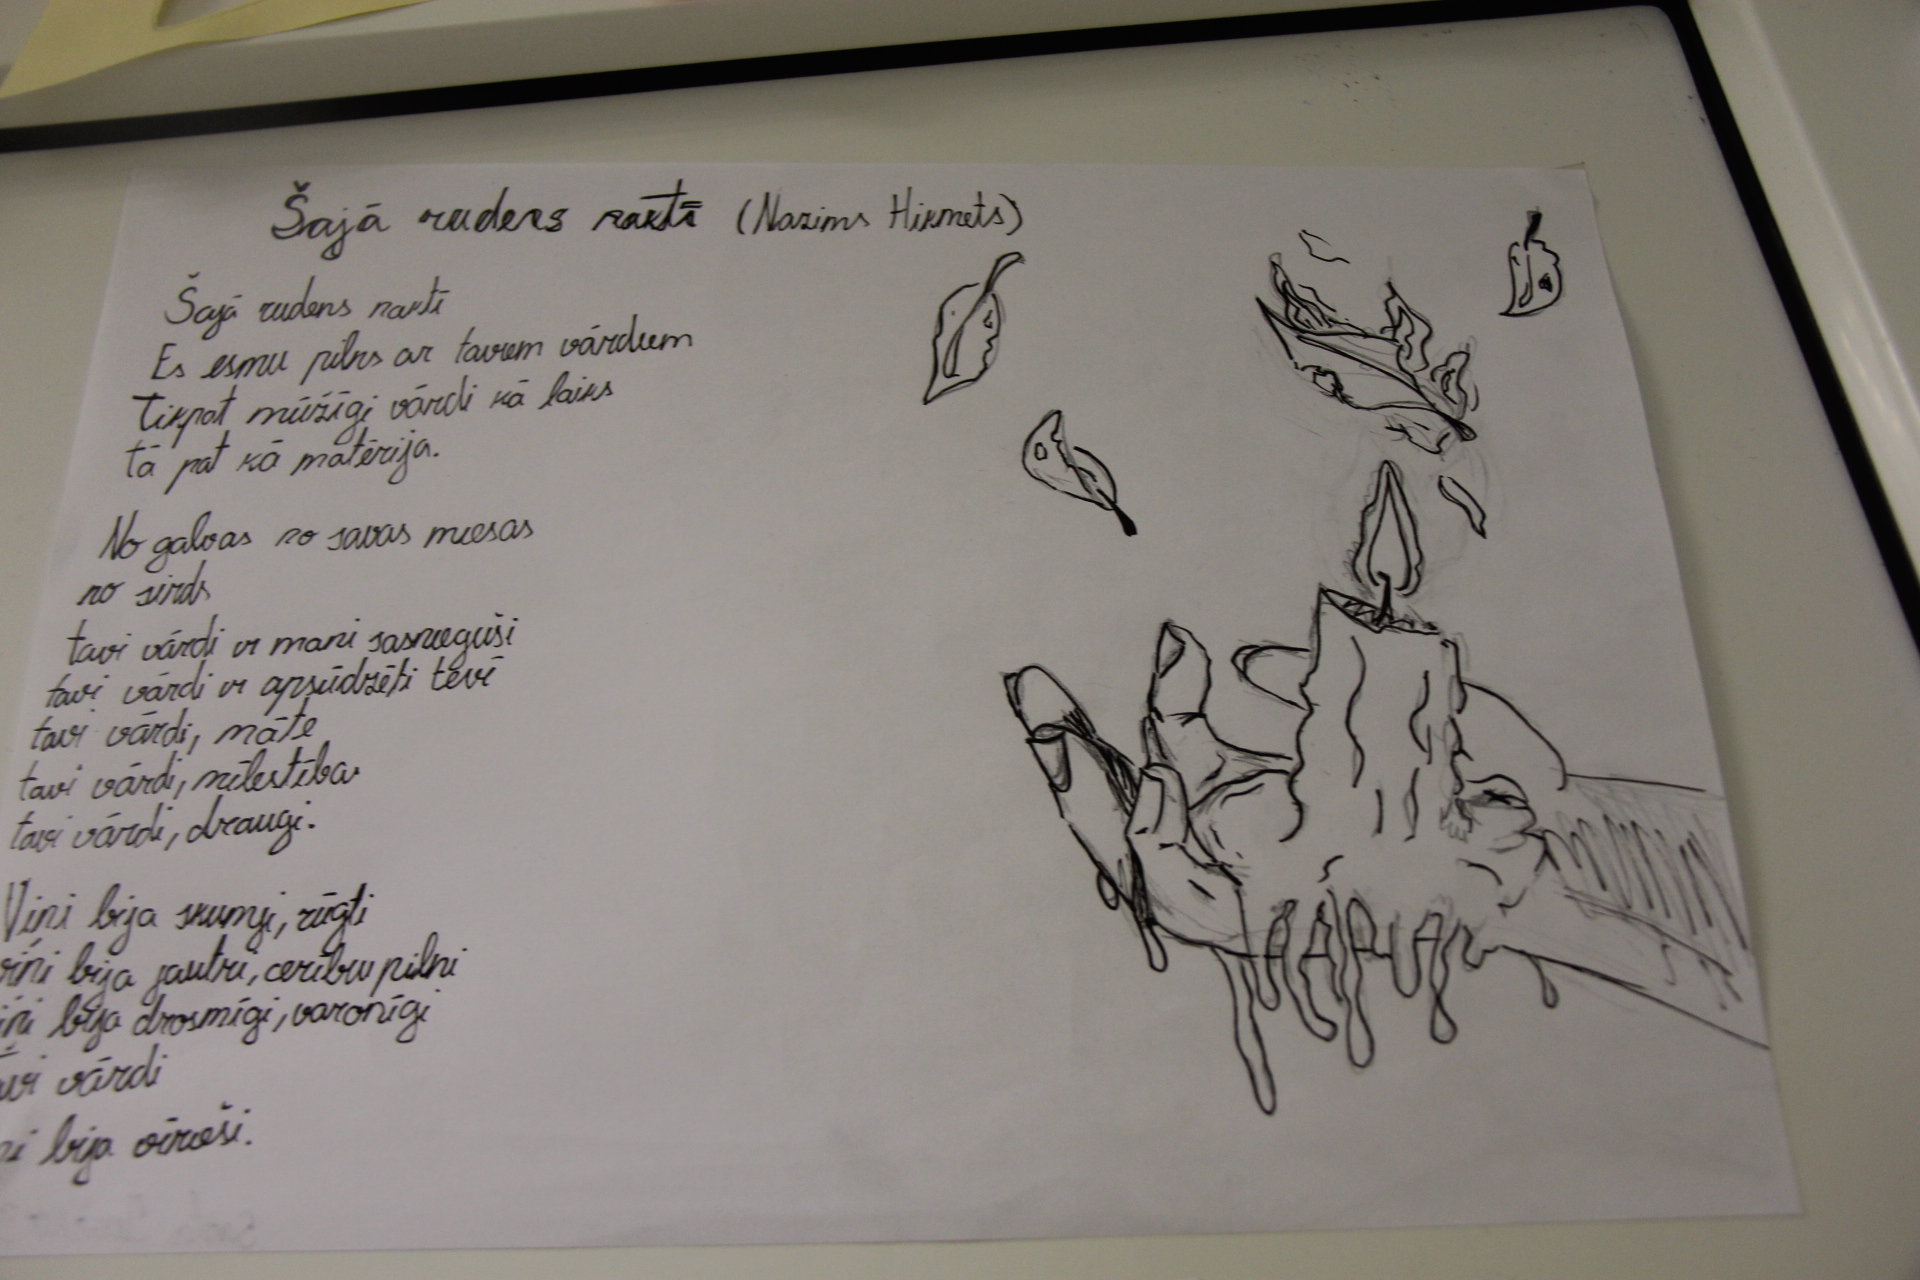 Šajā rudens naktī (Nazims Hikmets)
Šajā rudens naktī
Es esmu pilns ar taviem vārdiem
Tikpat mūžīgi vārdi kā laiks
tā pat kā matērija.
No galvas no savas miesas
no sirds
tavi vārdi ir mani sasnieguši
tavi vārdi ir apsūdzēti tevī
tavi vārdi, māte
tavi vārdi, mīlestība
tavi vārdi, draugi.
Viņi bija skumji, rūgti
viņi bija jautri, cerību pilni
viņi bija drosmīgi, varonīgi
tavi vārdi
bija vīrieši.